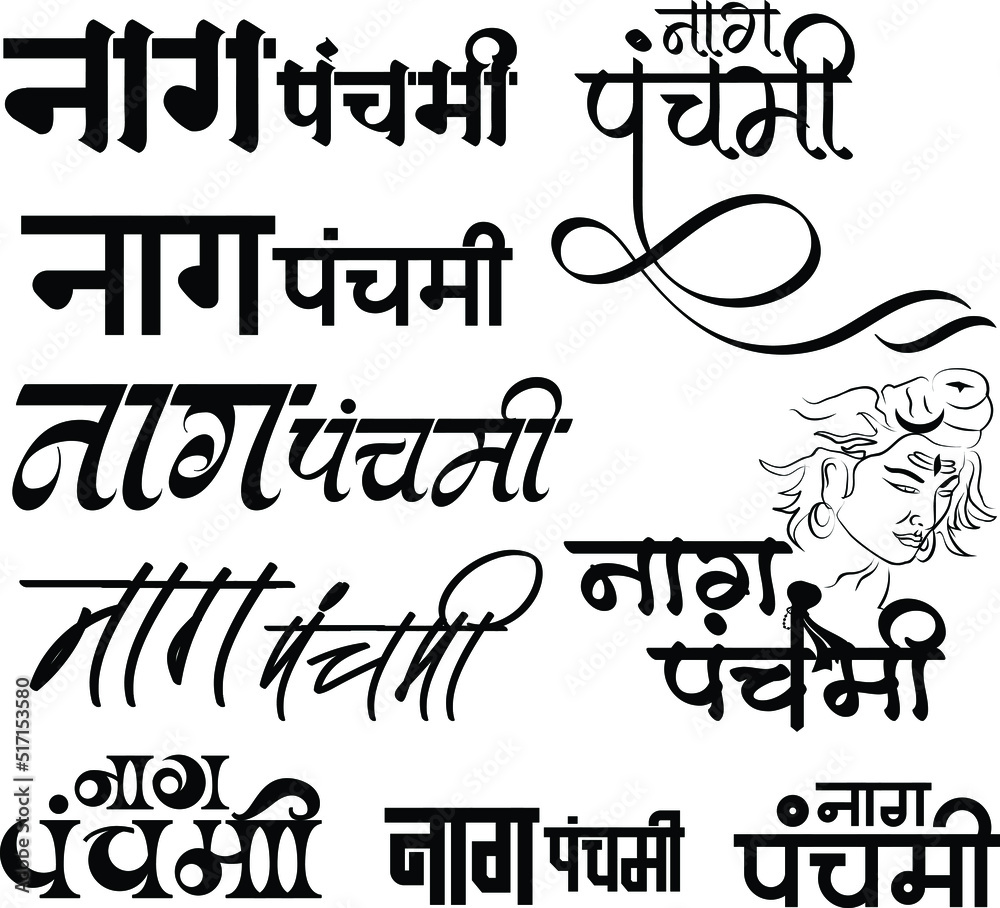 नाग पंचमी
नाग
पंचमी
नाग पंचमी
नाग पंचमी
नाग पंचमी
नाग
पंचमी
नाग
पंचमी
नाग पंचमी
नाग
पंचमी
Adobe Stock | #517153580